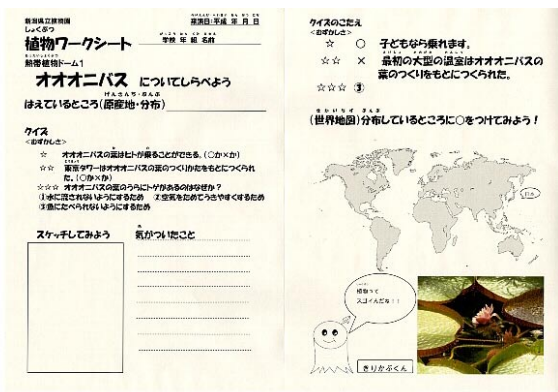 新潟県立植物園
しょくぶつ
植物ワークシート
熱帯植物ドーム1
来園日：平成 年 月 日
学校 年 組 名前
オオオニバス についてしらべよう
げんさんち・ぶんぷ
はえているところ（原産地・分布）
クイズ
<むずかしさ>
☆ オオオニバスの葉はヒトが乗ることができる。（○か×か）
☆☆ 東京タワーはオオオニバスの葉のつくりかたをもとにつくられ
た。（○か×か）
☆☆☆ オオオニバスの葉のうらにトゲがあるのはなぜか？
①水に流されないようにするため ②空気をためてうきやすくするため
③魚にたべられないようにするため
スケッチしてみよう
気がついたこと
クイズのこたえ
<むずかしさ>
☆ ○ 子どもなら乗れます。
☆☆ × 最初の大型の温室はオオオニバスの
葉のつくりをもとにつくられた。
☆☆☆ ③
せかいちず ぶんぷ
（世界地図）分布しているところに○をつけてみよう！
日本
植物って
スゴイんだな！！
きりかぶくん